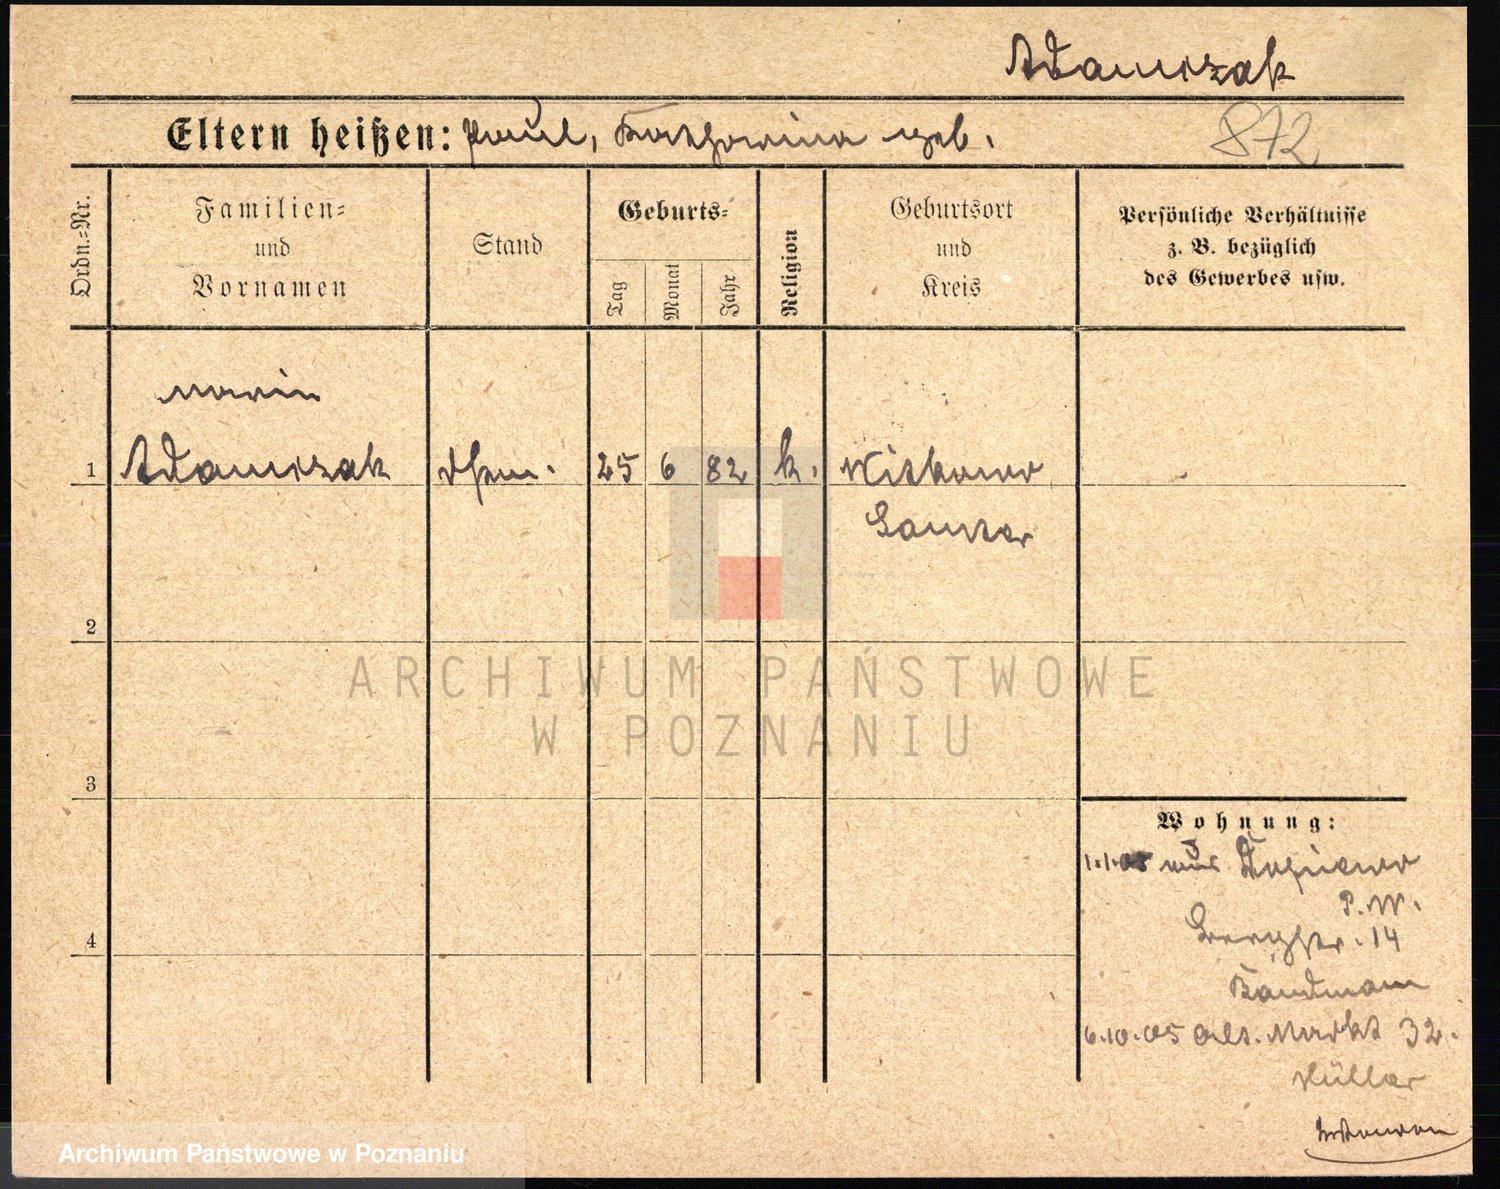 Adamczak
Eltern heißen: Paul, Katharina geb.
872
Ordn.-Nr.
Familien-
und
Vornamen
Stand
Geburts-
Tag
Monat
Jahr
Religion
Geburtsort
und
Kreis
Persönliche Verhältnisse
z. B. bezüglich
des Gewerbes usw.
Marie
1 Adamczak 25 6 82 k. Witkowo
Samter
2
3
4
Wohnung:
1.1.05 aus
P. W.
Bergstr. 14
Kaufmann
6.10.05 Alt. Markt 32.
Müller
ARCHIWUM PAŃSTWOWE
W POZNANIU
Archiwum Państwowe w Poznaniu